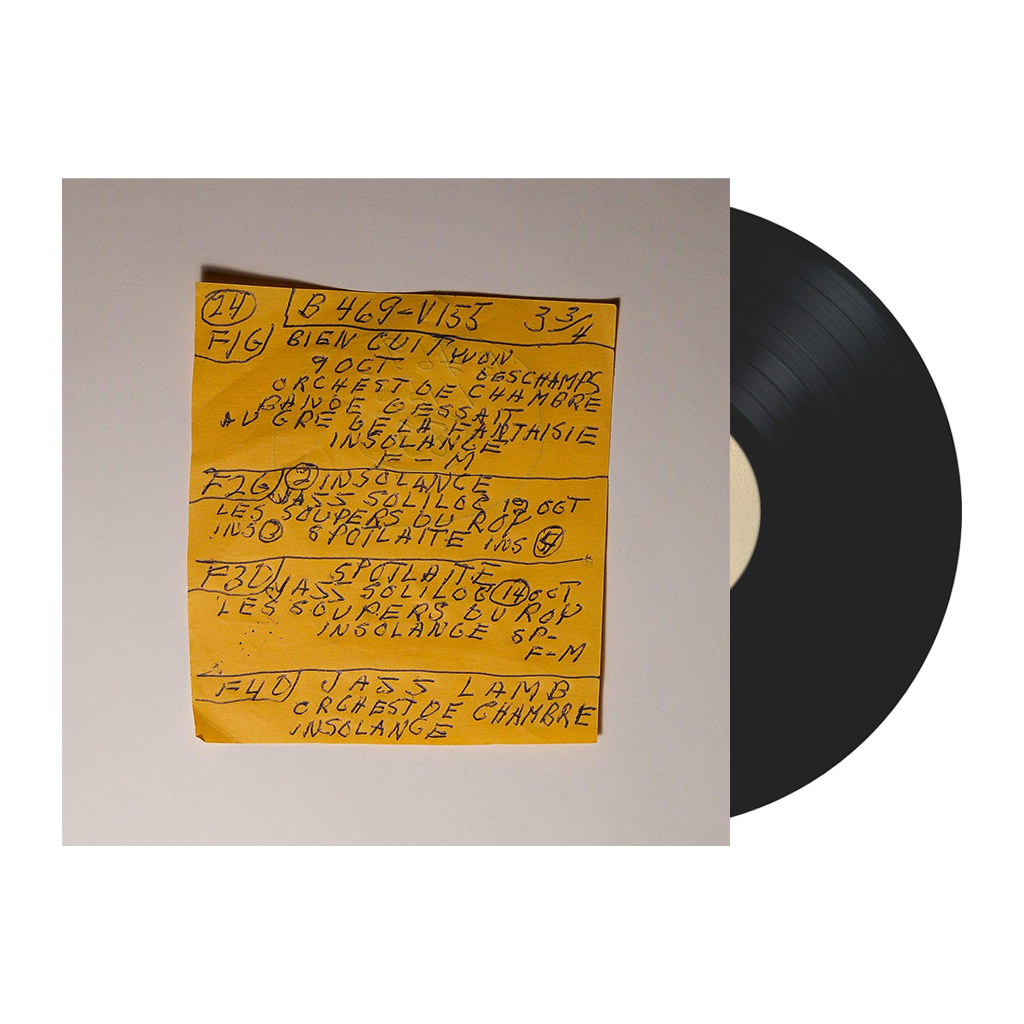 24 B 469-V155 3 3/4
F1G BIEN CUIT YVON
9 OCT DESCHAMPS
ORCHEST DE CHAMBRE
BANDE DESSAIT
AU GRE DE LA FANTAISIE
INSOLANGE
F-M
F2G 2 INSOLANCE
JASS SOLILOC 12 OCT
LES SOUPERS DU ROY
INS 3 SPOTLAITE INS 4
F3D SPOTLAITE
JASS SOLILOC 14 OCT
LES SOUPERS DU ROY
INSOLANGE SP-
F-M
F4D JASS LAMB
ORCHEST DE CHAMBRE
INSOLANGE